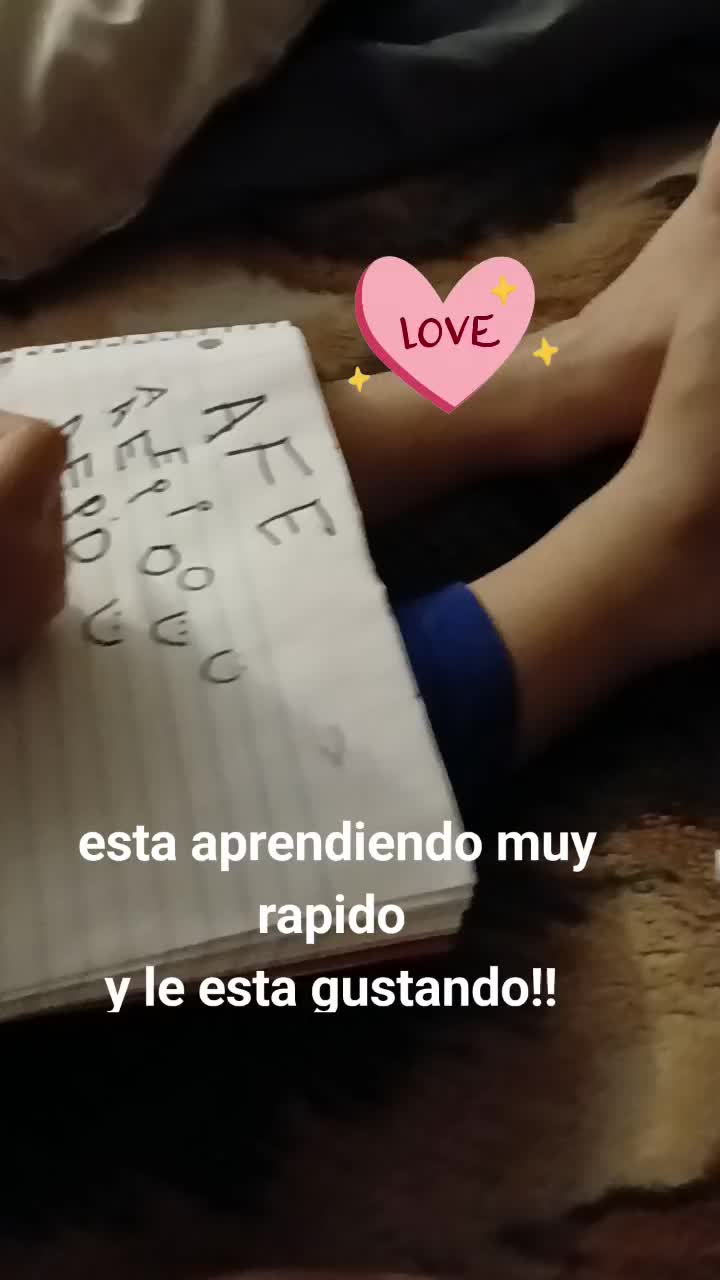 LOVE
A F E
A E i O U
A E i O U
A E i O U
esta aprendiendo muy
rapido
y le esta gustando!!